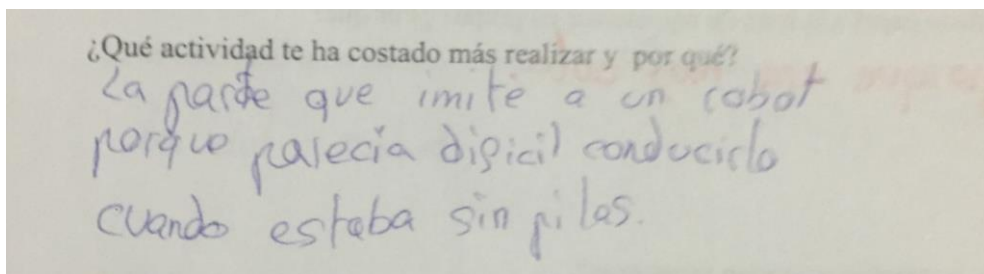 ¿Qué actividad te ha costado más realizar y por qué?
La parte que imité a un robot
porque parecía dificil conducirlo
cuando estaba sin pilas.